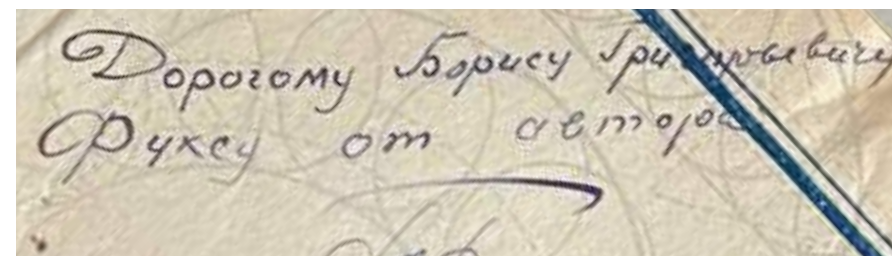 Дорогому Борису Григорьевичу
Фуксу от автора